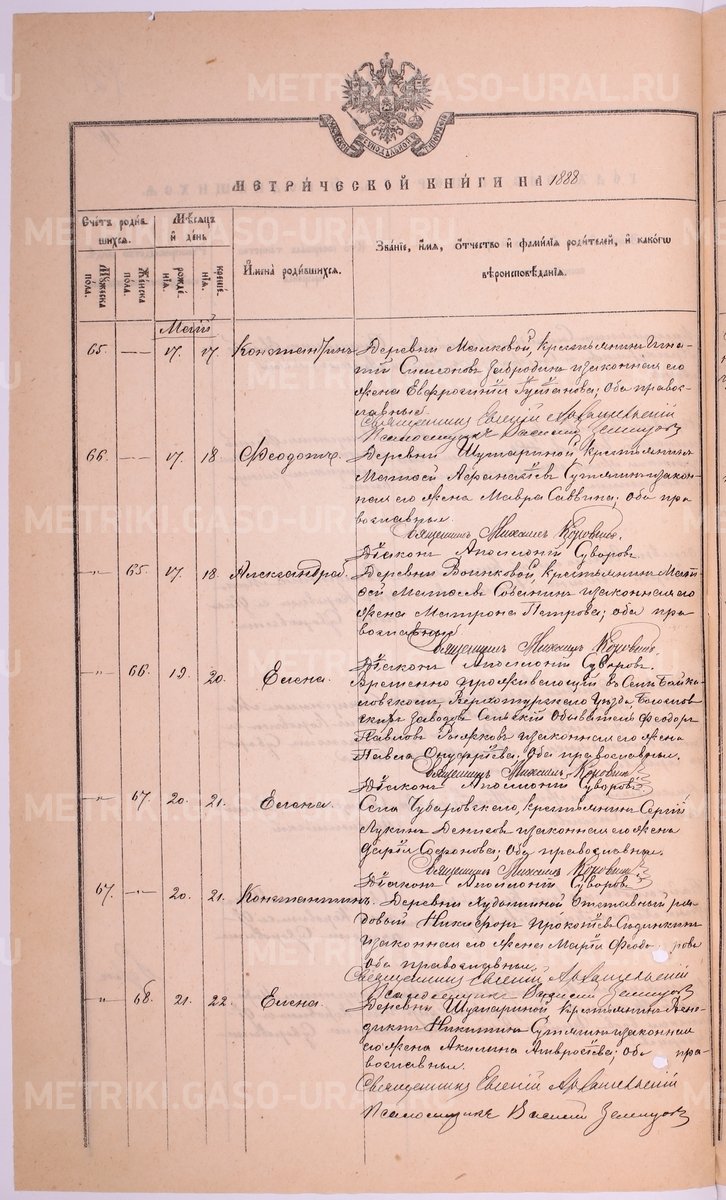 METRIKI.GASO-URAL.RU
СѴНОДАЛЬНОЙ
МЕТРИ́ЧЕСКОЙ КНИ́ГИ НА 1888
Счетъ роди́в
шихся.
Му́жеска
по́ла.
Же́нска
по́ла.
Мѣсяцъ
и҆ де́нь
рожде́
нїѧ.
креще́
нїѧ.
И҆мена̀ роди́вшихся.
Зва́нїе, и҆́мѧ, ѻ҆́тчество и҆ фами́лїѧ роди́телей, и҆ како́гѡ
вѣроисповѣ́данїѧ.
Маій
65. — 17. 17. Константинъ Деревни Малковой, крестьянинъ Игна-
тій Симеоновъ Забродинъ и законная его
жена Евфросинія ; оба право-
славные.
Священникъ Евгеній Архангельскій
Псаломщикъ Василій Земляницынъ
66. — 17. 18. Феодотъ. Деревни Шутариной крестьянинъ
Матѳей Аѳанасіевъ Сутягинъ и закон-
ная его жена Мавра Саввина, оба пра-
вославные.
Священникъ Михаилъ Коровинъ.
Діаконъ Аполлоній Суворовъ
„ 65. 17. 18. Александра. Деревни Воинковой крестьянинъ Мат-
ѳей Матѳеевъ Собянинъ и законная его
жена Матрона Петрова; оба пра-
вославные
Священникъ Михаилъ Коровинъ.
Діаконъ Аполлоній Суворовъ.
„ 66. 19. 20. Елена. Временно проживающій въ Селѣ Байка-
ловскомъ, Верхотурскаго Уѣзда Богослов-
скихъ заводовъ Сельскій Обыватель Феодоръ
Павловъ и законная его жена
Павла Онуфріева. Оба православные.
Священникъ Михаилъ Коровинъ
Діаконъ Аполлоній Суворовъ
„ 67. 20. 21. Елена. Села Чубаровскаго, крестьянинъ Сергій
Лукинъ Денисовъ и законная его жена
Дарія Софронова; Оба православные.
Священникъ Михаилъ Коровинъ
Діаконъ Аполлоній Суворовъ
67. — 20. 21. Константинъ. Деревни Худышиной Отставный ря-
довый Никифоръ Прокопіевъ
и законная его жена Марія Феодорова
Оба православные
Священникъ Евгеній Архангельскій
Псаломщикъ Василій Земляницынъ
„ 68. 21. 22. Елена. Деревни Шутариной крестьянинъ Вене-
диктъ Никитинъ Сутягинъ и законная
его жена Акилина Амвросіева; оба пра-
вославные.
Священникъ Евгеній Архангельскій
Псаломщикъ Василій Земляницынъ